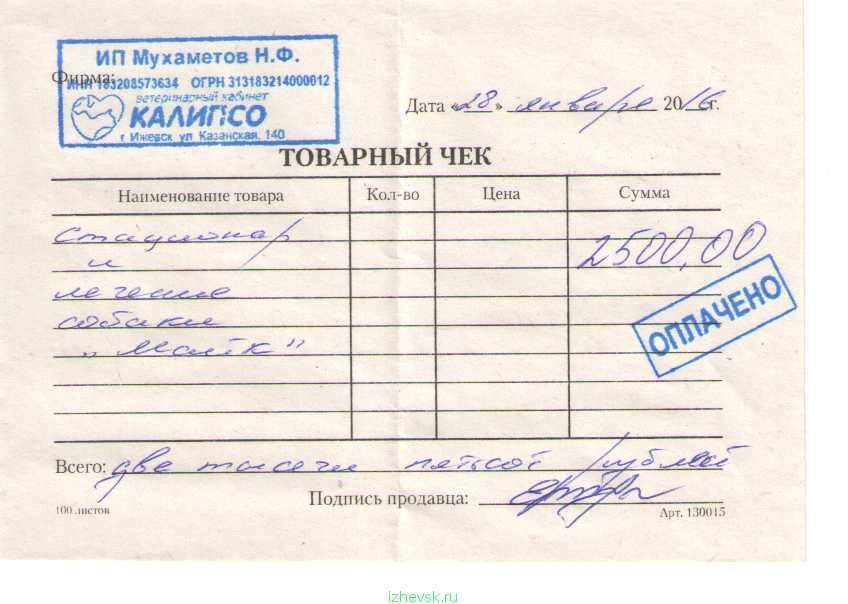 ИП Мухаметов Н.Ф.
Фирма:
ИНН 183208573634 ОГРН 313183214000012
ветеринарный кабинет
КАЛИПСО
г Ижевск ул Казанская, 140
Дата «28» январе 2016г.
ТОВАРНЫЙ ЧЕК
Наименование товара Кол-во Цена Сумма
Стационар
и
2500,00
лечение
собаки
ОПЛАЧЕНО
Всего: две тысячи пятьсот рублей
Подпись продавца:
100 листов
Арт. 130015
izhevsk.ru